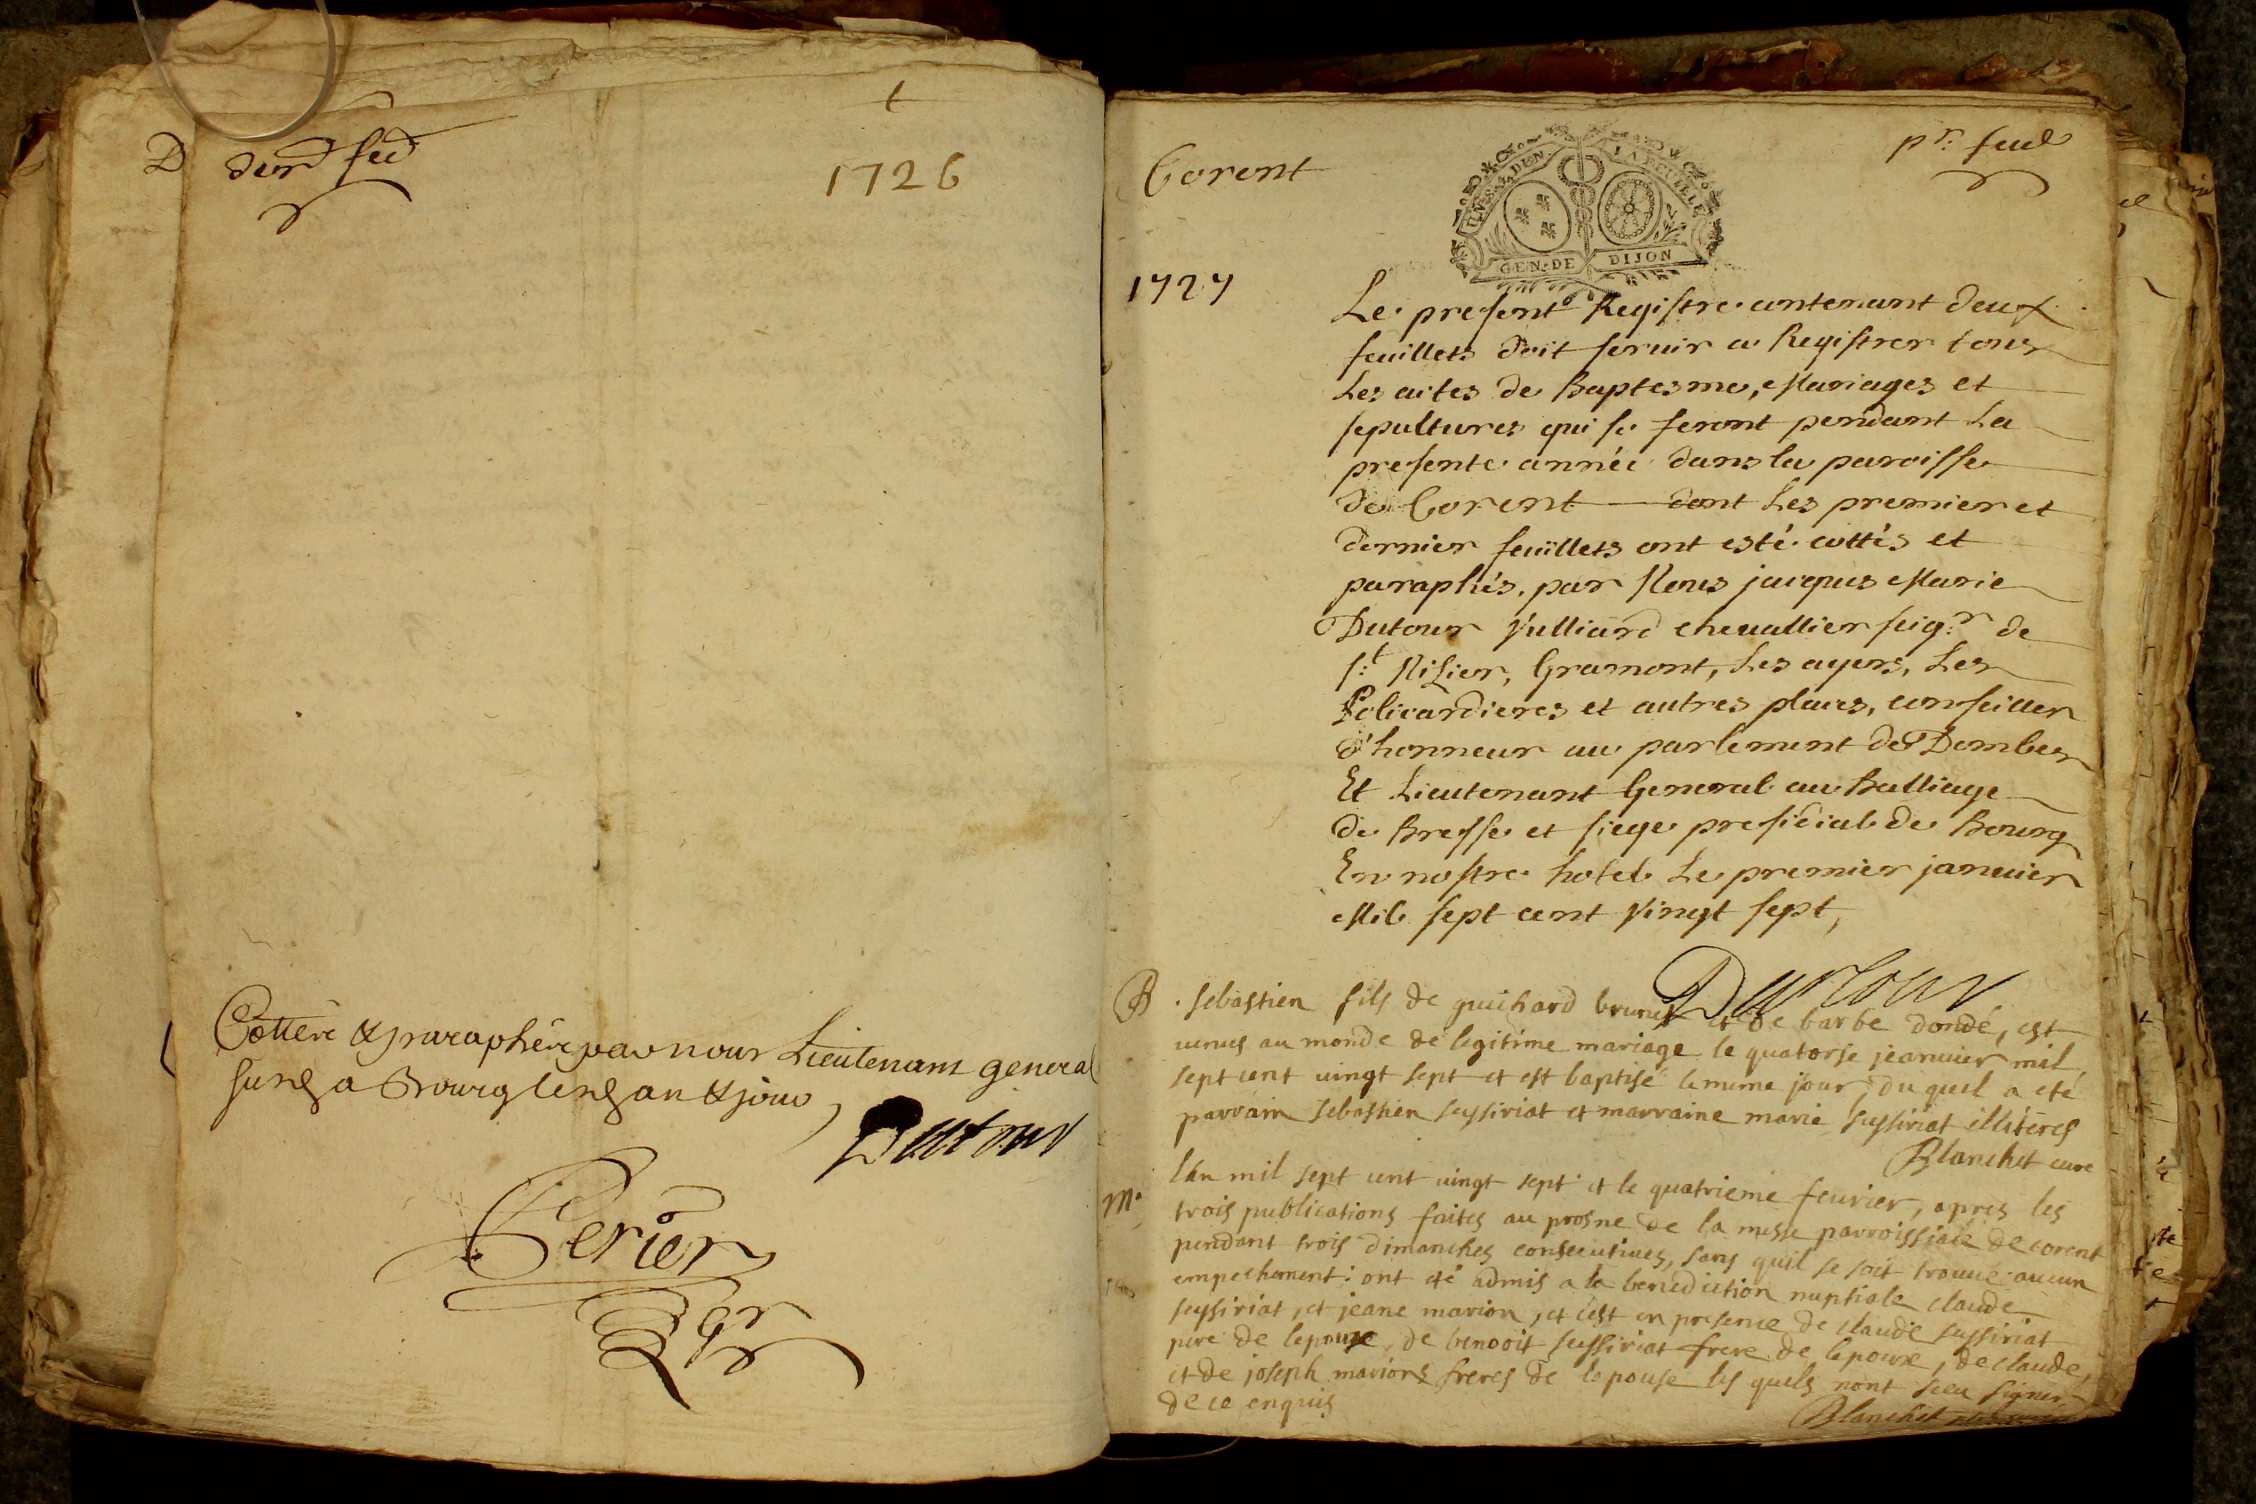 D
dern feul
1726
Cottere & parapherè par nous Lieutenant general
susd a Bourg lesd an & jour,
Dutour
Perier
Corent
pr. feul
GEN. DE DIJON
1727
Le present Registre contenant deux
feuillets doit servir a Registrer tous
Les actes de Baptesme, Mariages et
sepultures qui se feront pendant La
presente année dans la paroisse
de Corent dont Les premier et
dernier feüillets ont esté cottés et
paraphés, par Nous jacques Marie
Dutour Vulliard chevallier seigr. de
st. Nisier, Gramont, Les ayers, Les
Policardieres et autres places, conseiller
d'honneur au parlement de Dombes
Et Lieutenant General au Balliage
de Bresse et siege presidial de Bourg
En nostre hotel Le premier janvier
Mil sept cent Vingt sept,
Dutour
B. sebastien fils de guichard brunet et de barbe dondé, est
venus au monde de legitime mariage le quatorse jeanvier mil
sept cent vingt sept et est baptisé le meme jour, du quel a eté
parrain sebastien seyssiriat et marraine marie seyssiriat illitérés
Blanchet cure
M. lan mil sept cent vingt sept et le quatrieme fevrier, apres les
trois publications faites au prosne de la messe parroissiale de corent
pendant trois dimanches consecutives, sans quil se soit trouvé aucun
empechement: ont eté admis a la benediction nuptiale claude
seyssiriat, et jeane marion, et cest en presence de claude seyssiriat
pere de lepoux, de benooit seyssiriat frere de lepoux, de claude,
et de joseph marions freres de lepouse les quels nont sceu signer
de ce enquis
Blanchet